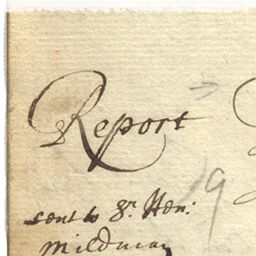 Report
19
sent to Sr. Hen:
Mildmay